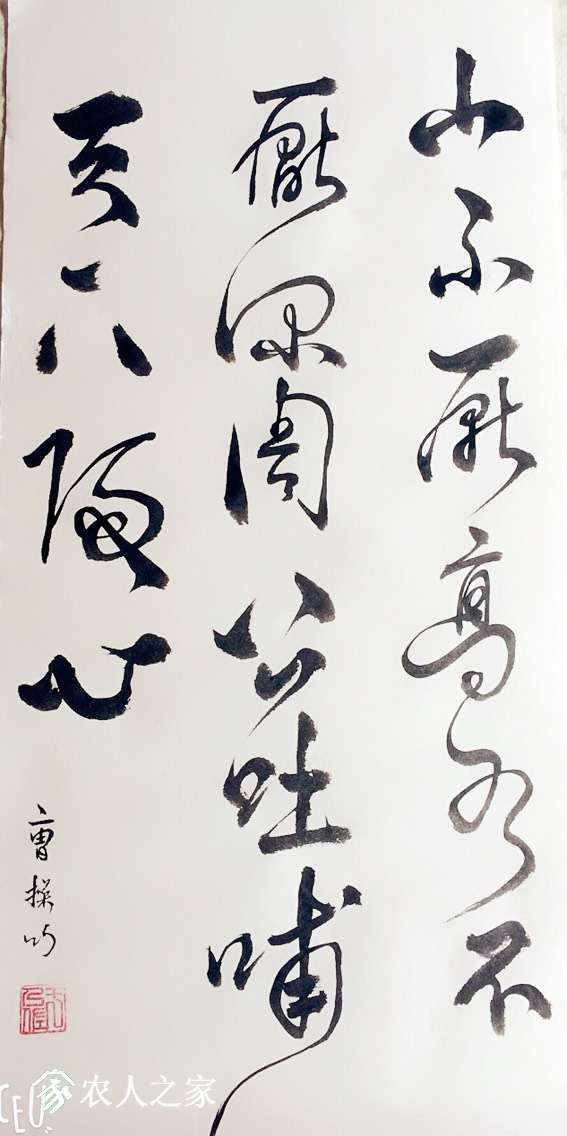 山不厭高水不
厭深周公吐哺
天下歸心
曹操句
农人之家